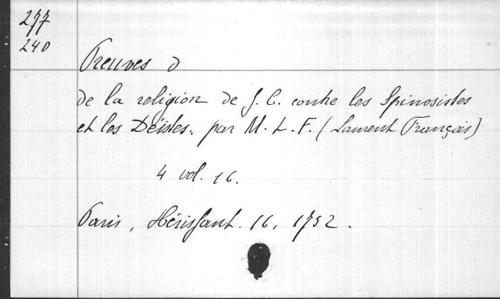 277
240
Preuves d
de la religion de J. C. contre les Spinosistes
et les Déistes. par M. L. F. (Laurent François)
4 vol. 16.
Paris, Hérissant. 16, 1752.